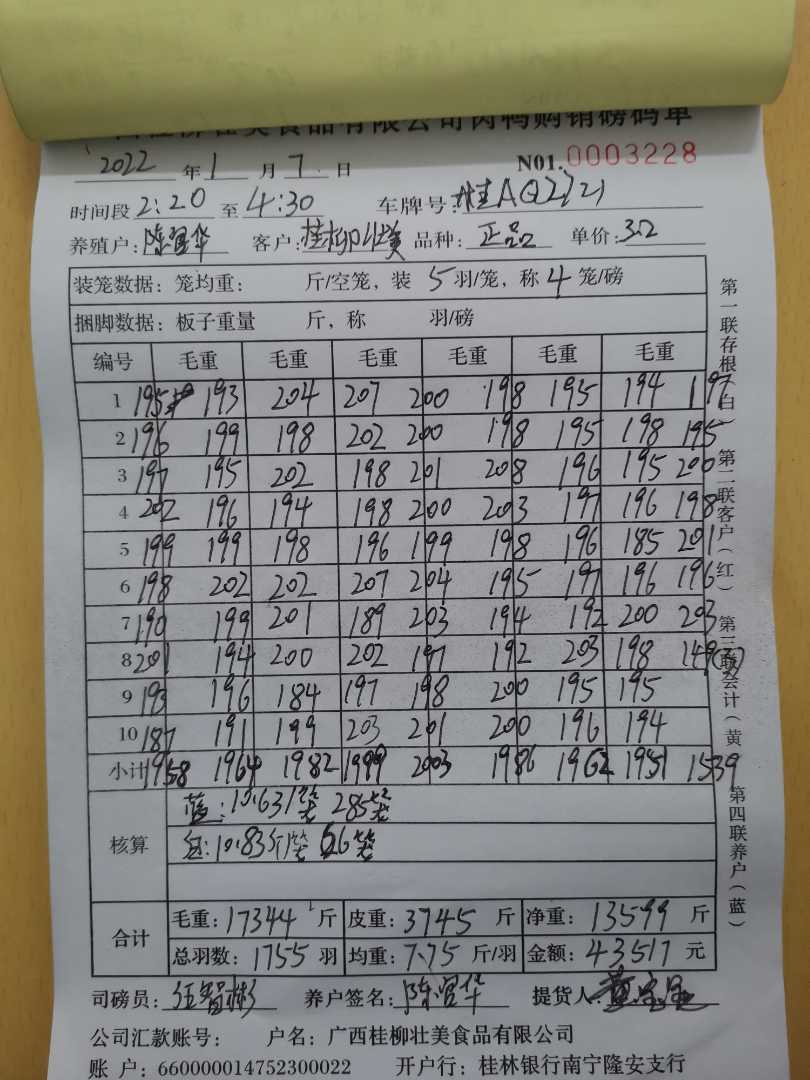 壮美食品有限公司肉鸭购销磅码单
2022 年 1 月 7 日 N01. 0003228
时间段 2:20 至 4:30 车牌号:
养殖户: 陈宜华 客户: 桂柳壮美 品种: 正品 单价: 3.2
装笼数据: 笼均重: 斤/空笼, 装 5 羽/笼, 称 4 笼/磅
捆脚数据: 板子重量 斤, 称 羽/磅
编号 毛重 毛重 毛重 毛重 毛重 毛重
1 195 193 204 207 200 198 195 194 197
2 196 199 198 202 200 198 195 198 195
3 197 195 202 198 201 208 196 195 200
4 202 196 194 198 200 203 197 196 198
5 199 199 198 196 199 198 196 185 201
6 198 202 202 207 204 195 197 196 196
7 190 199 201 189 203 194 192 200 203
8 201 194 200 202 197 192 203 198 149(3)
9 193 196 184 197 198 200 195 195
10 187 191 199 203 201 200 196 194
小计 1958 1964 1982 1999 2003 1986 1962 1951 1539
核算
蓝: 10.631斤/笼 285笼
: 10.83斤/笼 66笼
合计
毛重: 17344 斤 皮重: 3745 斤 净重: 13599 斤
总羽数: 1755 羽 均重: 7.75 斤/羽 金额: 43517 元
司磅员: 伍智彬 养户签名: 陈宜华 提货人:
公司汇款账号: 户名: 广西桂柳壮美食品有限公司
账 户: 660000014752300022 开户行: 桂林银行南宁隆安支行
第一联存根(白) 第二联客户(红) 第三联会计(黄) 第四联养户(蓝)